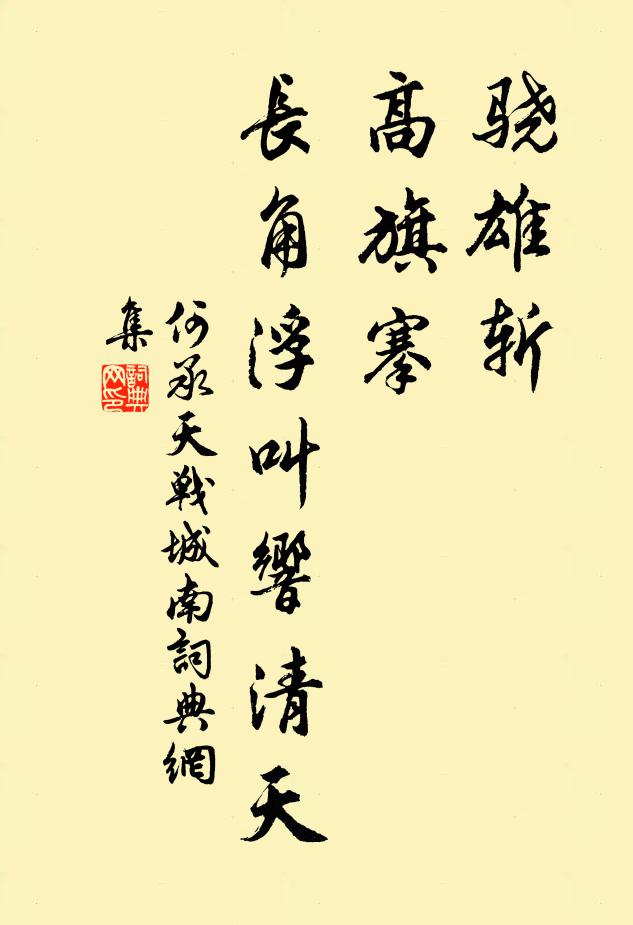 骁雄斩
高旗搴
長角浮叫響清天
何承天戰城南詞典網
集
詞典
网印